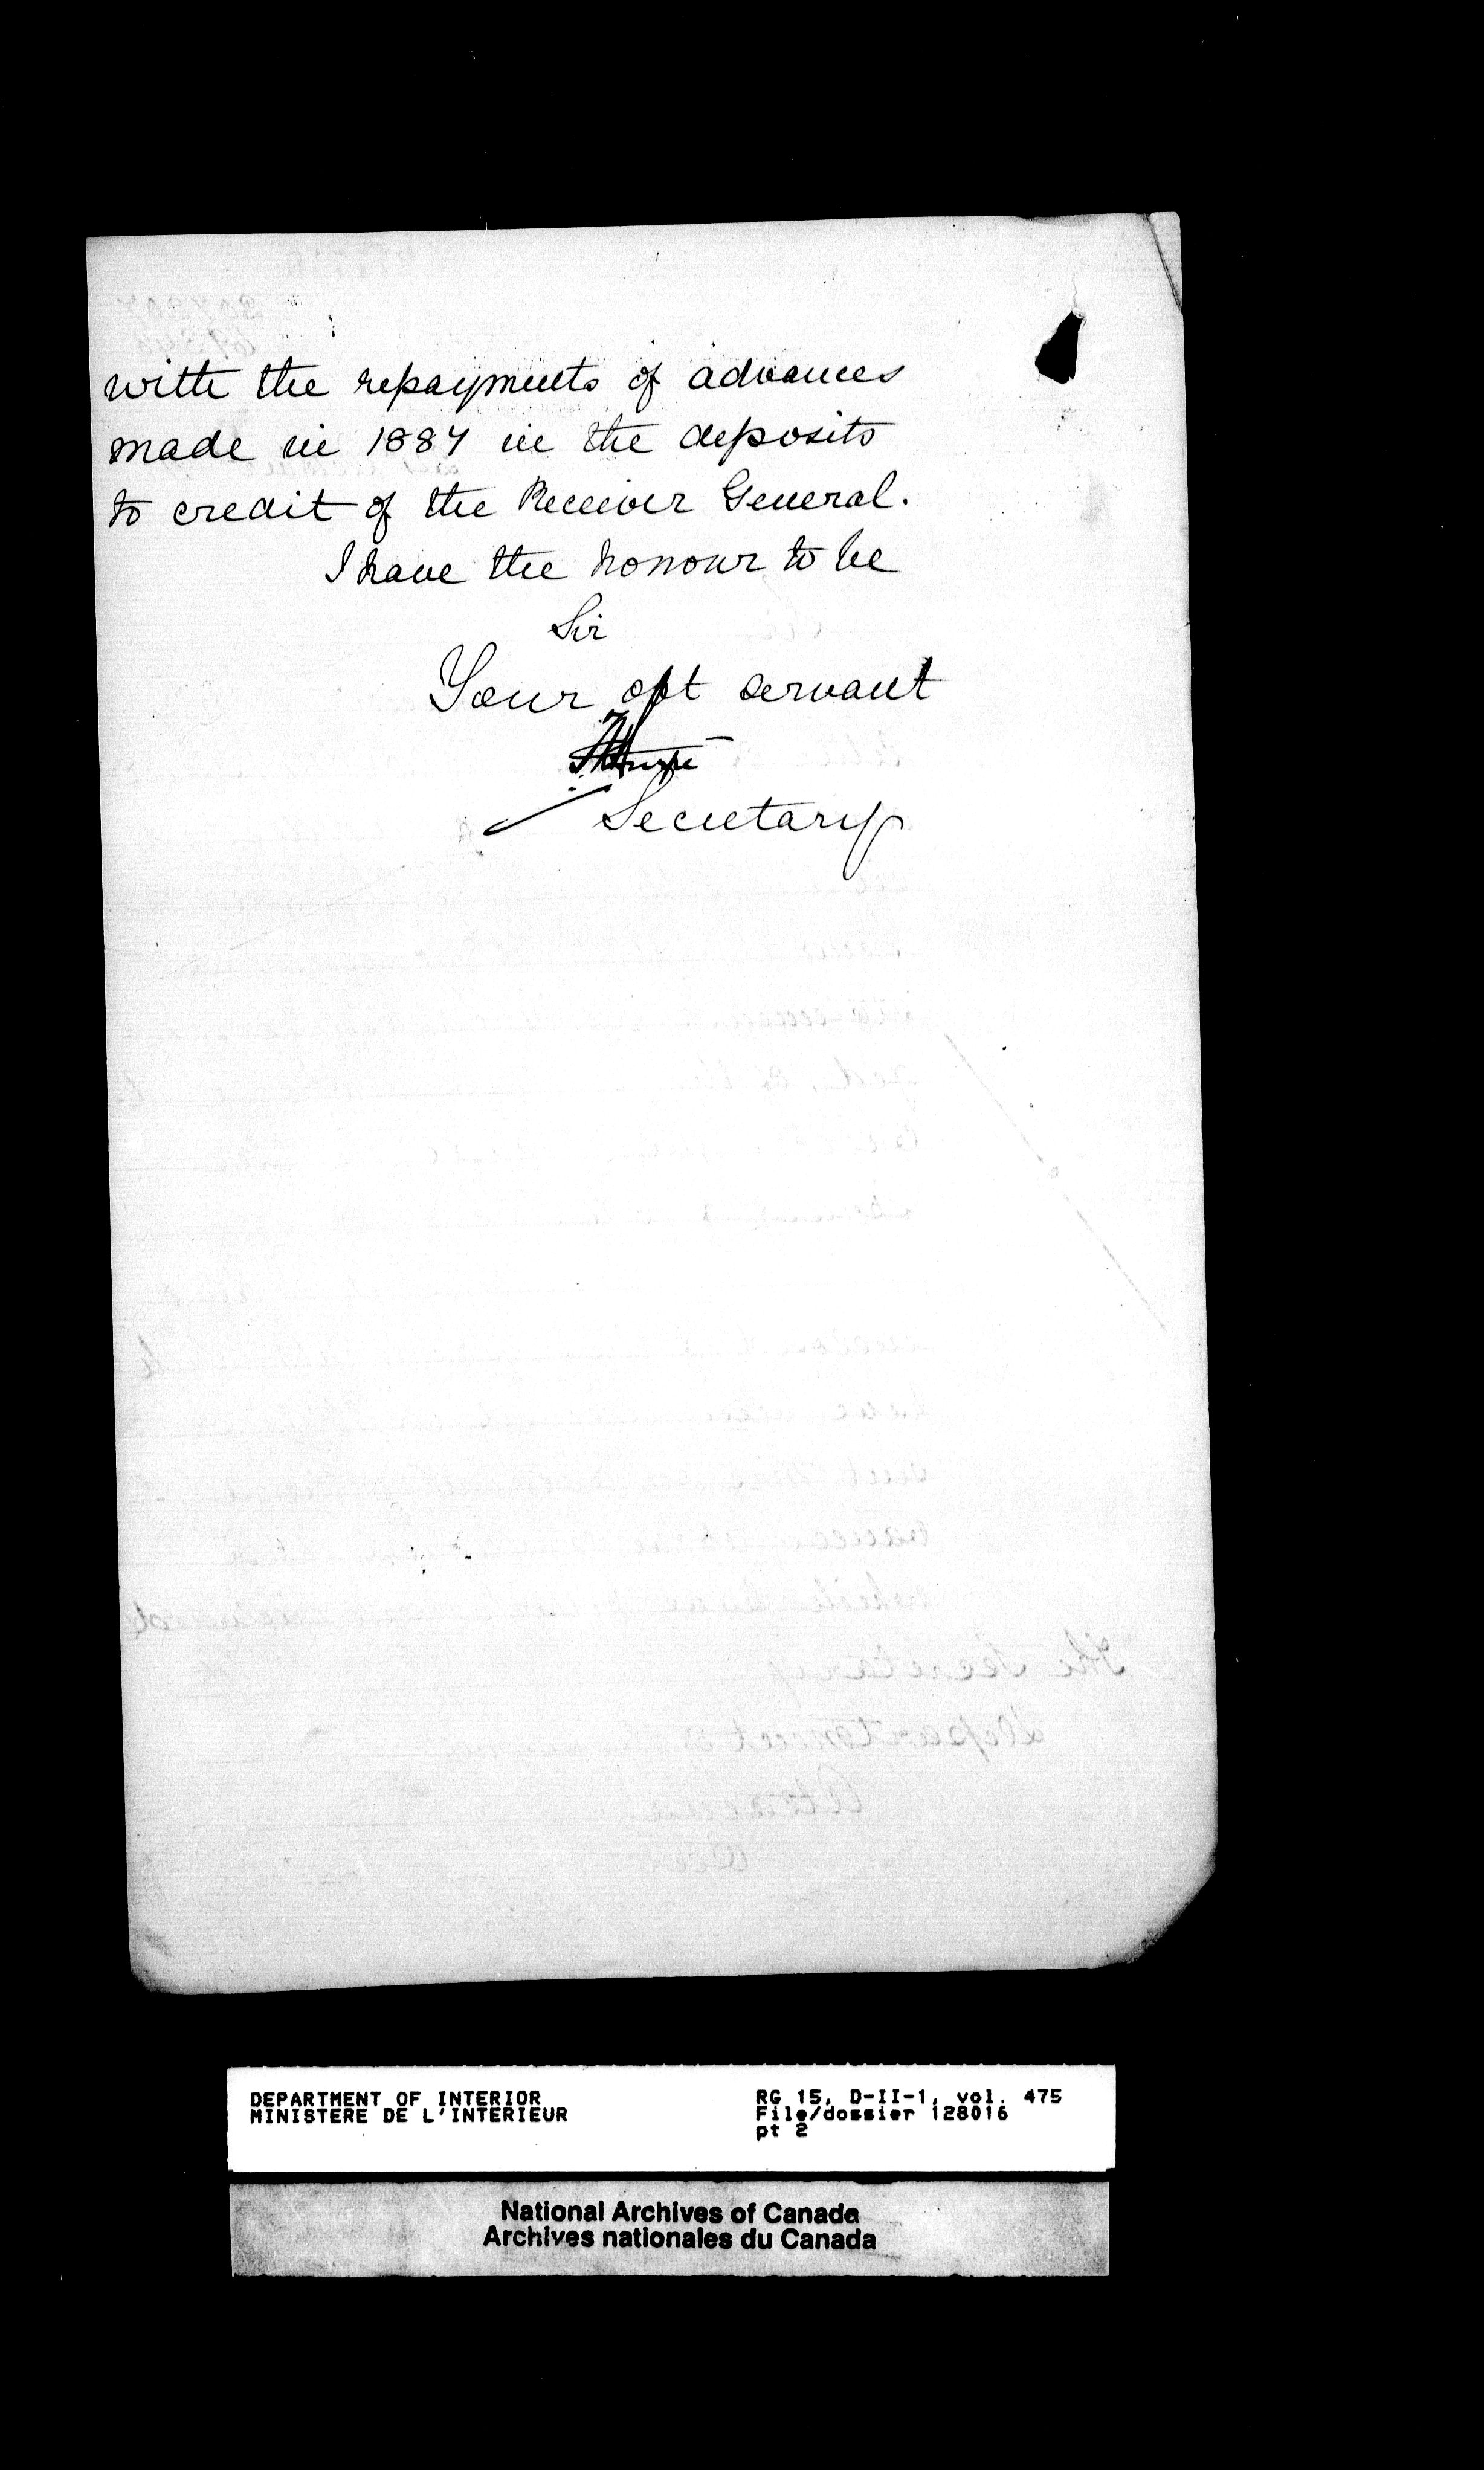 with the repayments of advances
made in 1887 in the deposits
to credit of the Receiver General.
I have the honour to be
Sir
Your obt servant
Secretary
DEPARTMENT OF INTERIOR
MINISTERE DE L'INTERIEUR
RG 15, D-II-1, vol. 475
File/dossier 128016
pt 2
National Archives of Canada
Archives nationales du Canada